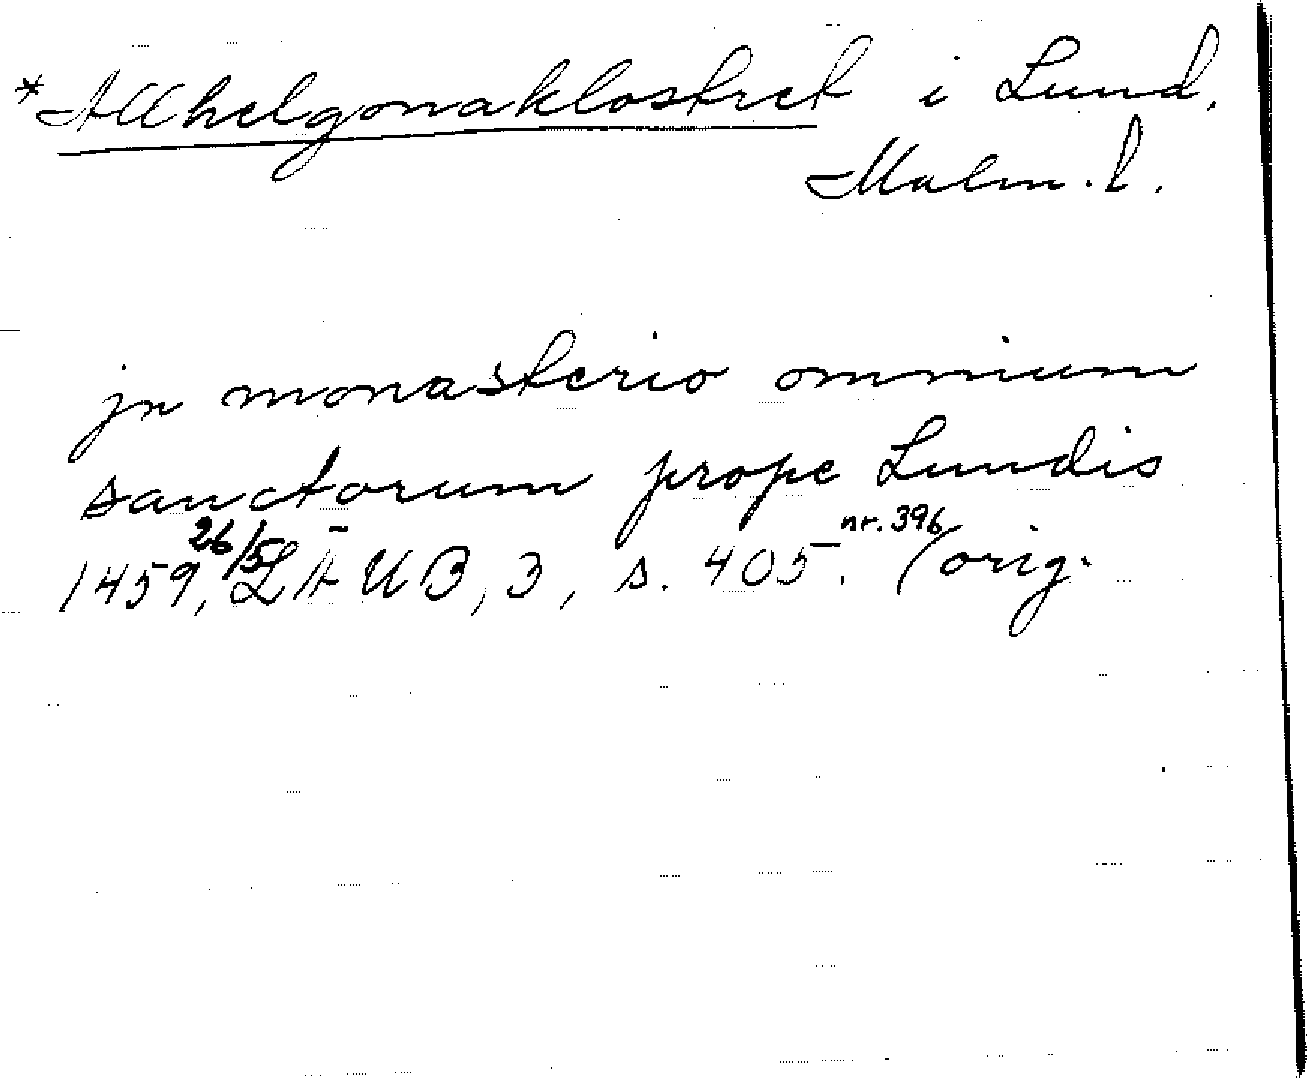 *Allhelgonaklostret i Lund,
Malm. l.
jn monasterio omnium
sanctorum prope Lundis
1459, 26/5 LÄUB, 3, s. 405. nr. 396 (orig.